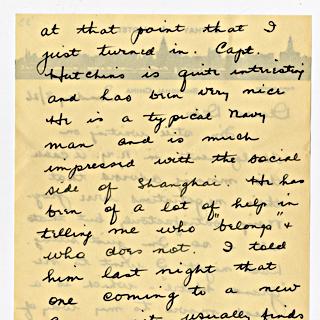 at that point that I
just turned in. Capt.
Hutchins is quite intristing
and has been very nice
He is a typical Navy
man and is much
impressed with the social
side of Shanghai. He has
been of a lot of help in
telling me who "belongs" +
who does not. I told
him last night that
one coming to a new
usually finds